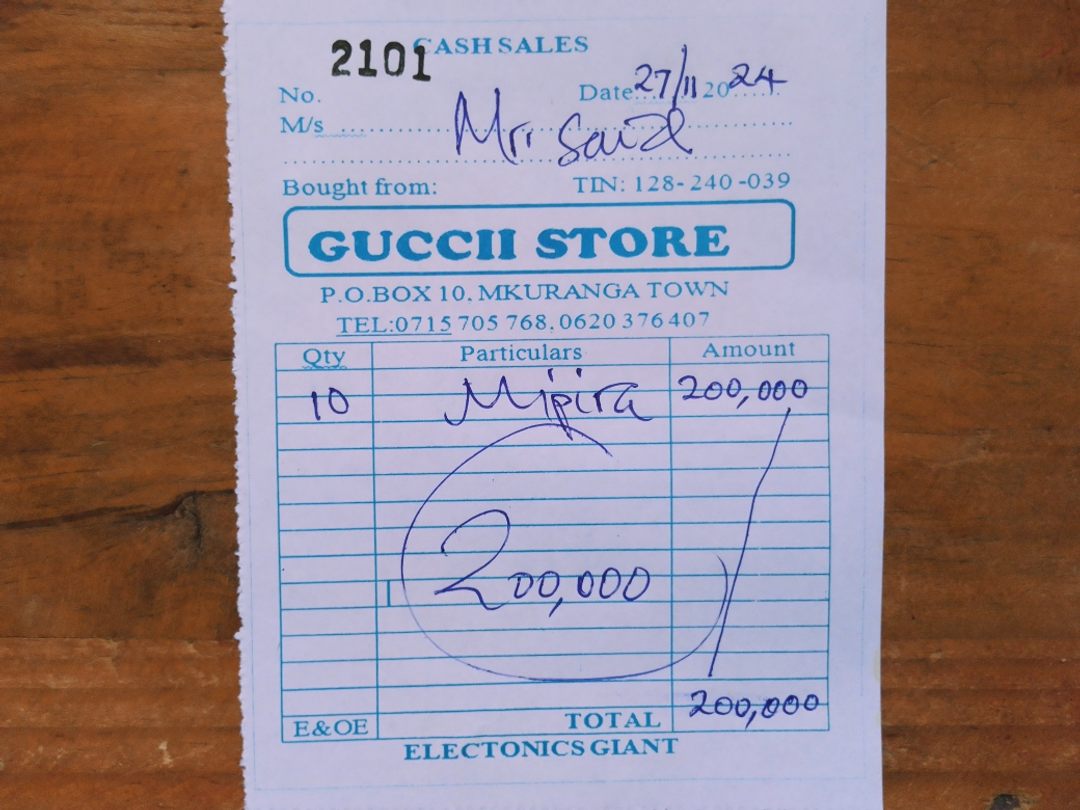 CASH SALES
2101
No. Date 27/11 2024
M/s Mr. Said
Bought from: TIN: 128-240-039
GUCCII STORE
P.O.BOX 10. MKURANGA TOWN
TEL:0715 705 768, 0620 376 407
Qty Particulars Amount
10 Mipira 200,000
200,000
E&OE TOTAL 200,000
ELECTONICS GIANT